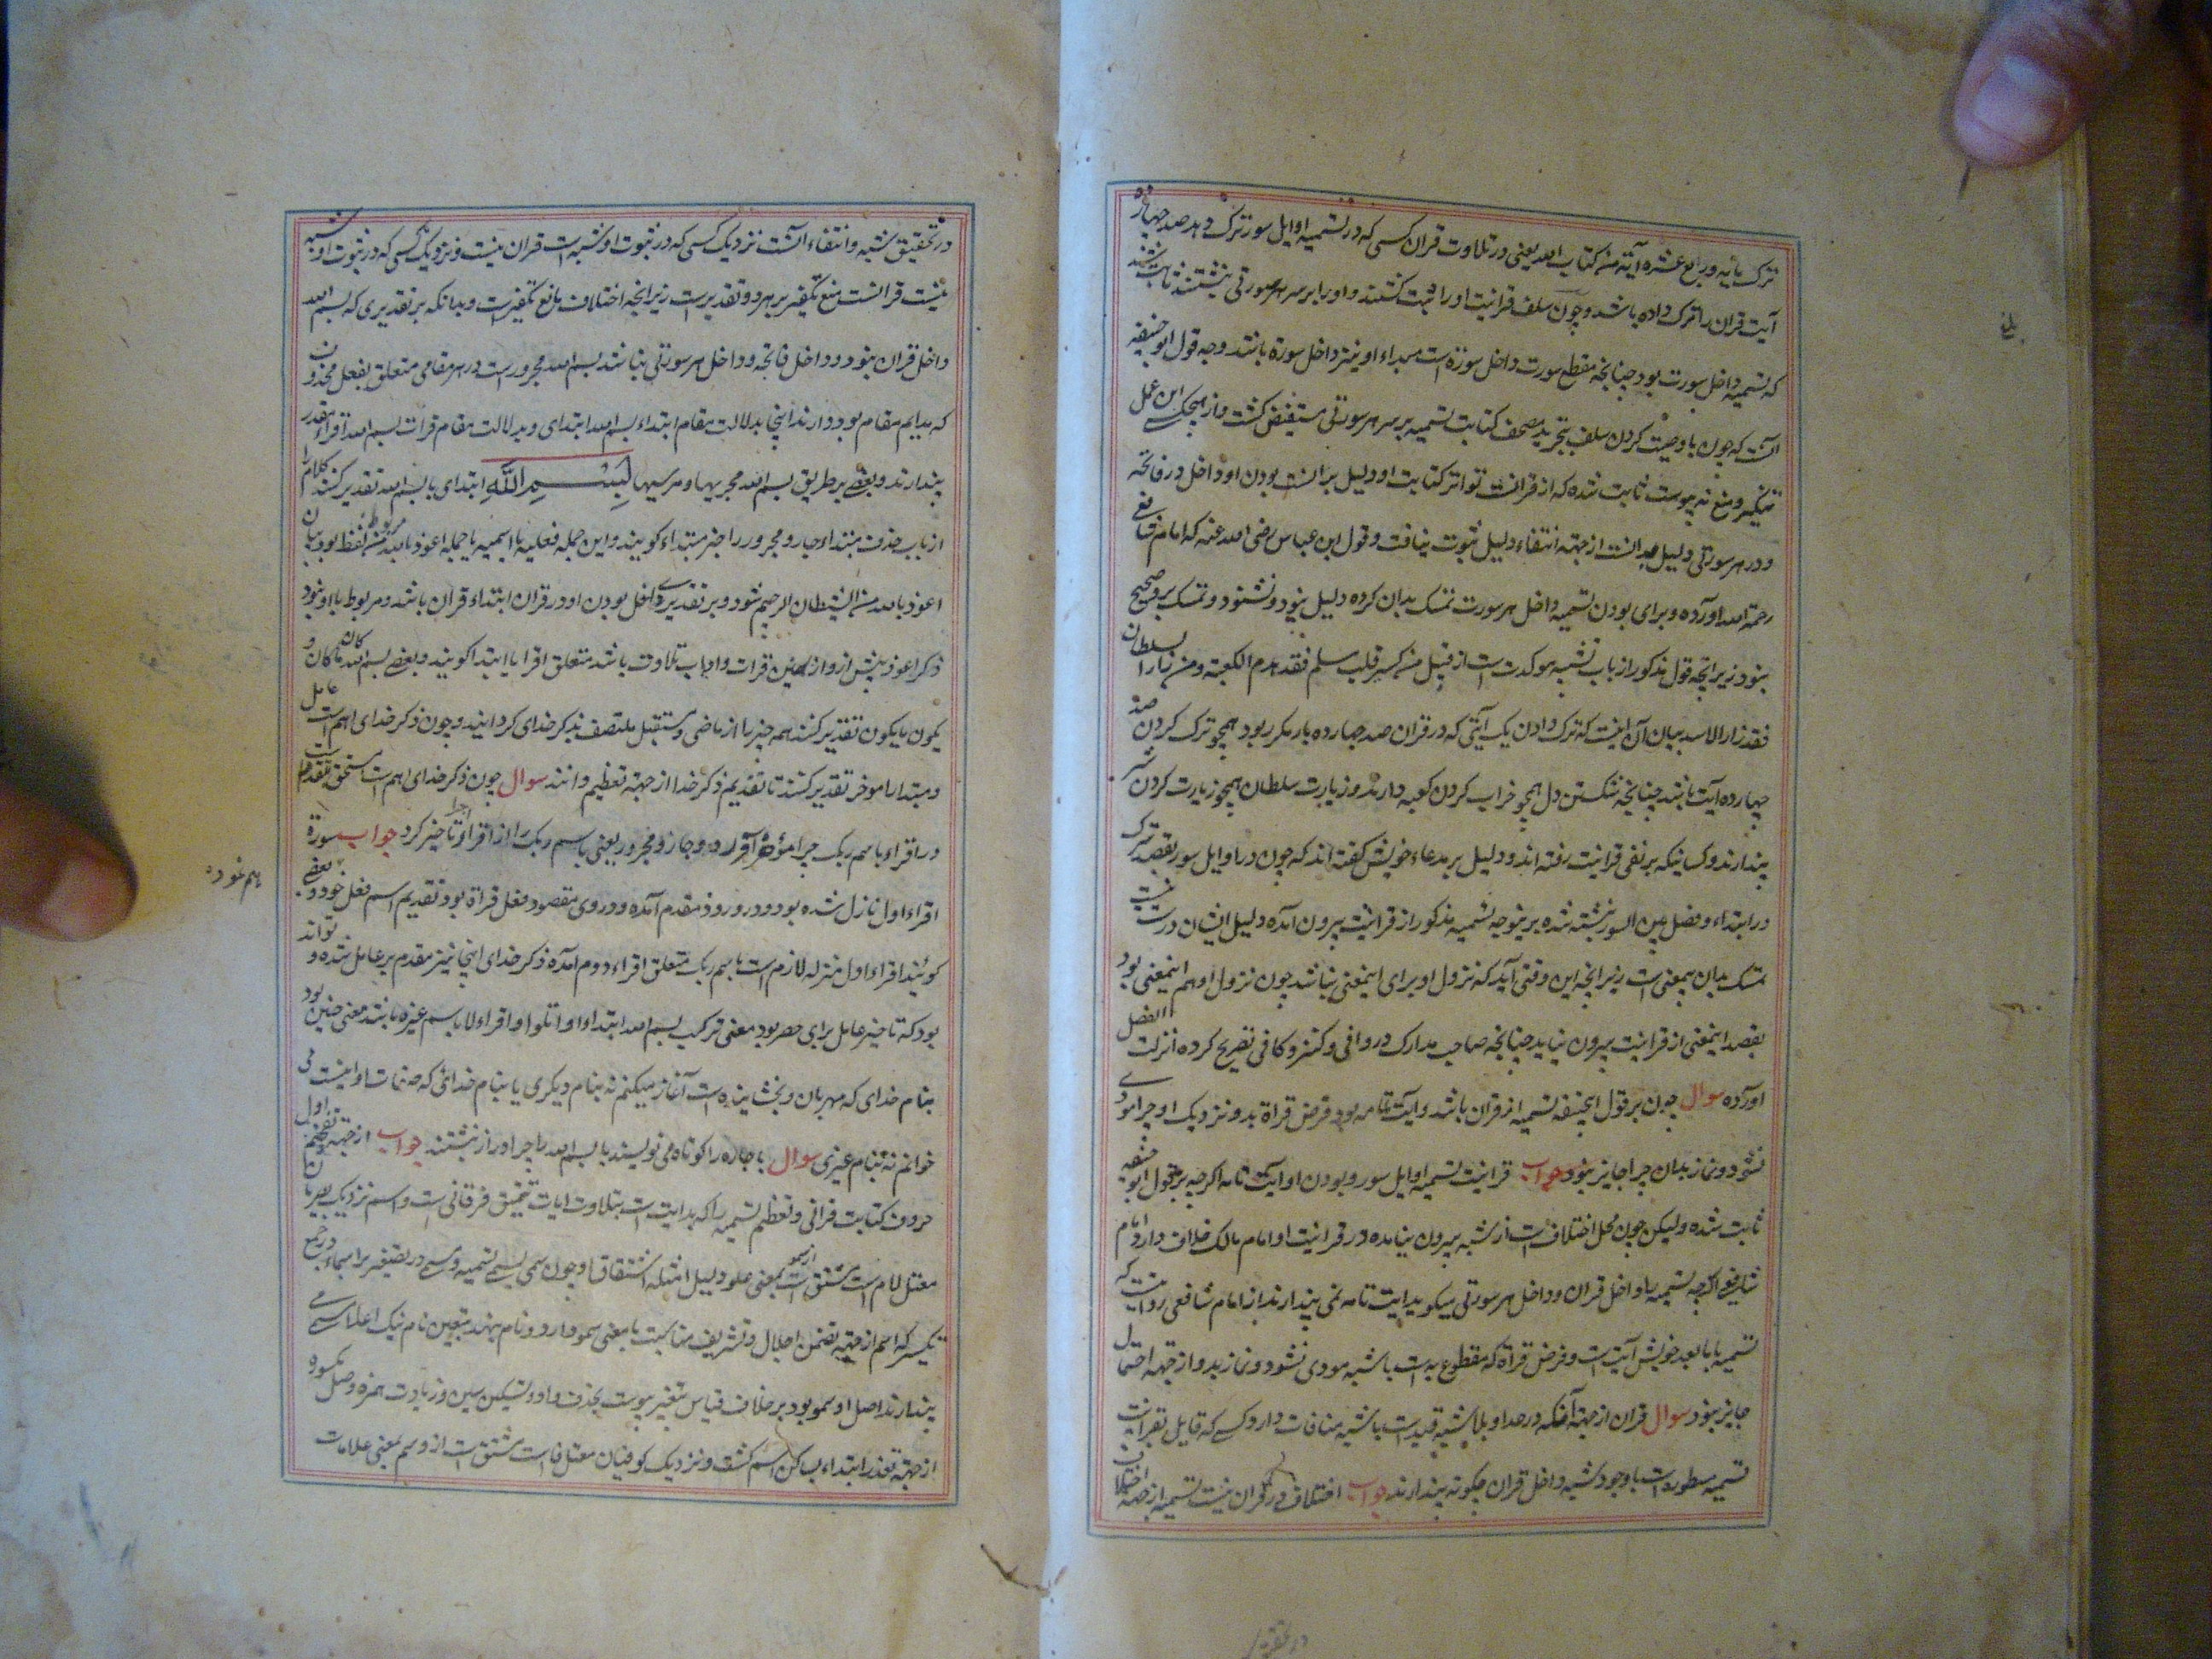 ترک مایه و رابع عشره آیة من کتاب الله یعنی در تلاوت قران کسی که در تسمیه اوایل سور ترک دهد صد چهارده
آیت قران را ترک داده باشد و چون سلف قرانیت او را ثبت کنند و او را بر سر هر سورتی نبشتند ثابت شد
که تسمیه داخل سورت بود چنانچه مقطع سورت داخل سورة است مبداء او نیز داخل سورة باشد وجه قول ابوحنیفه
انست که چون با وصیت کردن سلف بتجرید مصحف کتابت تسمیه بر سر هر سورتی مستفیض کشت و از هیچکسی این عمل
نکیر و منع نه پیوست ثابت شده که از قرانست تواتر کتابت او دلیل بر انست بودن او داخل در فاتحه
و در هر سورتی دلیل از جهته انتفاء دلیل ثبوت نیافت و قول ابن عباس رضی الله عنه که امام شافعی
رحمة الله آورده و برای بودن تسمیه داخل هر سورت تمسک بدان کرده دلیل نبود و نشنود و تمسک بروی صحیح
نبود زیرانچه قول مذکور از باب تشبیه موکدست از قبیل من کسر قلب مسلم فقد هدم الکعبة و من زار السلطان
فقد زار الاسد بیان آن اینست که ترک دادن یک آیتی که در قران صد چهارده بار مکرر بود همچو ترک کردن صد
چهارده آیت باشد چنانچه شکستن دل همچو خراب کردن کعبه دارند و زیارت سلطان همچو زیارت کردن شیر
پندارند و کسانیکه بر نفی قرانیت رفته اند و دلیل بر مدعاء خویش کفته اند که چون در اوایل سور بقصد تبرک
در ابتداء و فصل بین السور نبشته شده برینوجه تسمیه مذکور از قرانیت بیرون آمده دلیل ایشان درست نیست
تمسک بدان بیمعنی است زیرانچه این وقتی آید که نزول او برای اینمعنی نباشد چون نزول او هم اینمعنی بود
بقصد اینمعنی از قرانیت بیرون نیاید چنانچه صاحب مدارک در وافی و کنز و کافی تصریح کرده انزلت للفصل
آورده سوال چون بر قول ابیحنیفه تسمیه از قران باشد و آیت تامه بود فرض قراة بدو نزدیک او چرا مودی
نشود و نماز بدان چرا جایز نبود جواب قرانیت تسمیه اوایل سور و بودن او آیت تامه اگرچه بر قول ابوحنیفه
ثابت شده ولیکن چون محل اختلاف است از شبه بیرون نیامده در قرانیت او امام مالک خلاف دارد و امام
شافعی اگرچه تسمیه را داخل قران و داخل هر سورتی میکوید آیت تامه نمی پندارند از امام شافعی روایتست که
تسمیه با ما بعد خویش آیت است و فرض قراة که مقطوع به است باشبه مودی نشود و نماز بدو از جهته احتمال
جایز نبود سوال قران از جهته آنکه در حد او بلاشبه قید است باشبه منافات دارد کسی که قایل بقرانیت
تسمیه مسطوره است با وجود شبه داخل قران چکونه پندارند جواب اختلاف در قران نیست تسمیه از جهته اختلاف
بلغ
در تحقیق
در تحقیق شبه و انتفاء آنست نزدیک کسی که در ثبوت او شبه است قران نیست و نزدیک کسی که در ثبوت او شبه
نیست قرانست منع تکفیر بر هر دو تقدیر است زیرانچه اختلاف مانع تکفیر است و بدانکه بر تقدیری که بسم الله
داخل قران بود و داخل فاتحه و داخل هر سورتی نباشد بسم الله مجرور است در هر مقامی متعلق بفعل محذوف
که ملایم مقام بود دارند اینجا بدلالت مقام ابتداء بسم الله ابتدای و بدلالت مقام قرات بسم الله اقراء مقدر
پندارند و بعضی بر طریق بسم الله مجریها و مرسیها بسم الله ابتدای یا بسم الله تقدیر کنند کلام را
از باب حذف مبتداء جار و مجرور را خبر مبتداء کویند و این جمله فعلیه یا اسمیه با جمله اعوذ بالله مربوط لفظ بود بیان
اعوذ بالله من الشیطان الرجیم شود و بر تقدیری داخل بودن او در قران ابتداء قران باشد و مربوط با او نبود
ذکر اعوذ پیش ازو از سنن قرات و اداب تلاوت باشد متعلق اقرا یا ابتدا کویند و بعضی بسم الله کان ما کان و
یکون ما یکون تقدیر کنند همه چیز را از ماضی و مستقبل ملتصف بذکر خدای کردانیند و چون ذکر خدای اهم است عامل
و مبتدا را موخر تقدیر کنند تا تقدیم ذکر خدا از جهته تعظیم دانند سوال چون ذکر خدای اهم است مستحق تقدم است
در اقراء باسم ربک چرا موخر آورد و جار و مجرور یعنی باسم ربک را از اقراء چرا تاخیر کرد جواب سورة
اقراء اول نازل شده بود و در ورود مقدم آمده و در وی مقصود فعل قراة بود تقدیم اسم فعل نمود و بعضی
کویند اقراء اول منزله لازم است باسم ربک متعلق اقراء دوم آمده ذکر خدای اینجا نیز مقدم بر عامل شده و تواند
بود که تاخیر عامل برای حصر بود معنی ترکیب بسم الله ابتداء او اتلوا و اقراء لا باسم غیره باشد معنی چنین بود
بنام خدای که مهربان و بخشاینده است آغاز میکنم نه بنام دیکری یا بنام خدائی که صفات او اینست می
خوانم نه بنام غیری سوال با جاره را کوتاه می نویسند با بسم الله را چرا دراز نبشتند جواب از جهته تفخیم اول
حروف کتابت قرانی و تعظیم تسمیه را که بدایت است بتلاوت ایات تحقیق فرقانی است و اسم نزدیک بصریان
معتل لام است مشتق از سمو است بمعنی علو دلیل امثله اشتقاق او چون سمی یسمی تسمیه و سمی در تصغیر بر اسماء در جمع
تکسیر که اسم از جهته تضمن اجلال و تشریف مناسبت با معنی سمو دارد و نام نهند بتعیین نام نیک اعلا مسمی
پندارند اصل او سمو بود بر خلاف قیاس تغیر پیوست بحذف واو و تسکین سین و زیادت همزه وصل مکسوره
از جهته تعذر ابتداء بساکن اسم کشت و نزدیک کوفیان معتل فاست مشتق است از وسم بمعنی علامات